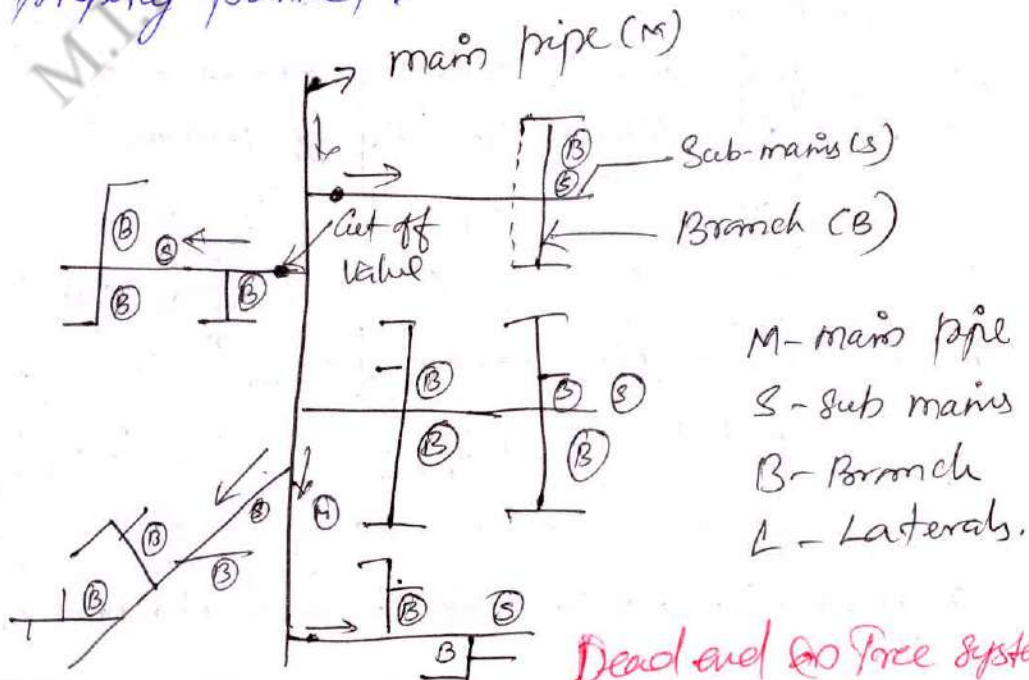 M.I.
main pipe (M)
B
S
Sub-mains (S)
Branch (B)
Cut off
Value
B
S
B
B
B
B
B
S
B
M - main pipe
S - Sub mains
B - Branch
L - Laterals.
S
M
B
B
B
B
S
B
Dead end (or) Tree syste